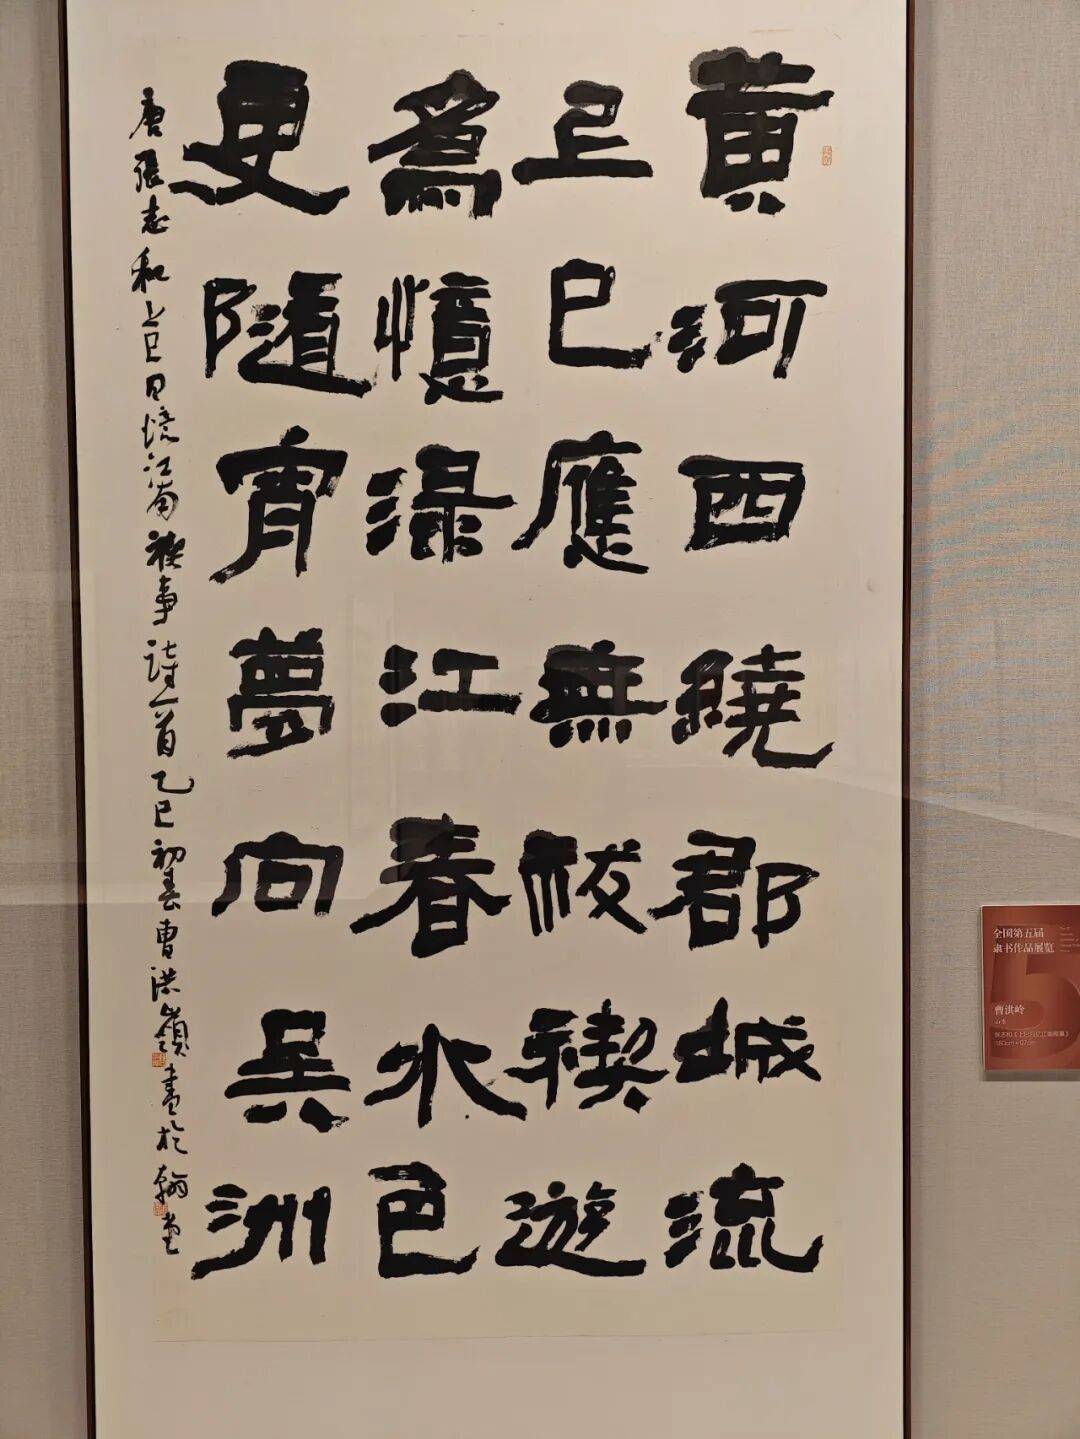 黄河西繞郡城流
上巳應無祓禊遊
爲憶淥江春水色
更隨宵夢向吳洲
唐張志和上巳日憶江南禊事詩一首乙巳初春曹洪嶺書於翰堂
全国第五届
隶书作品展览
曹洪岭
山东
张志和《上巳日忆江南禊事》
180cm×97cm